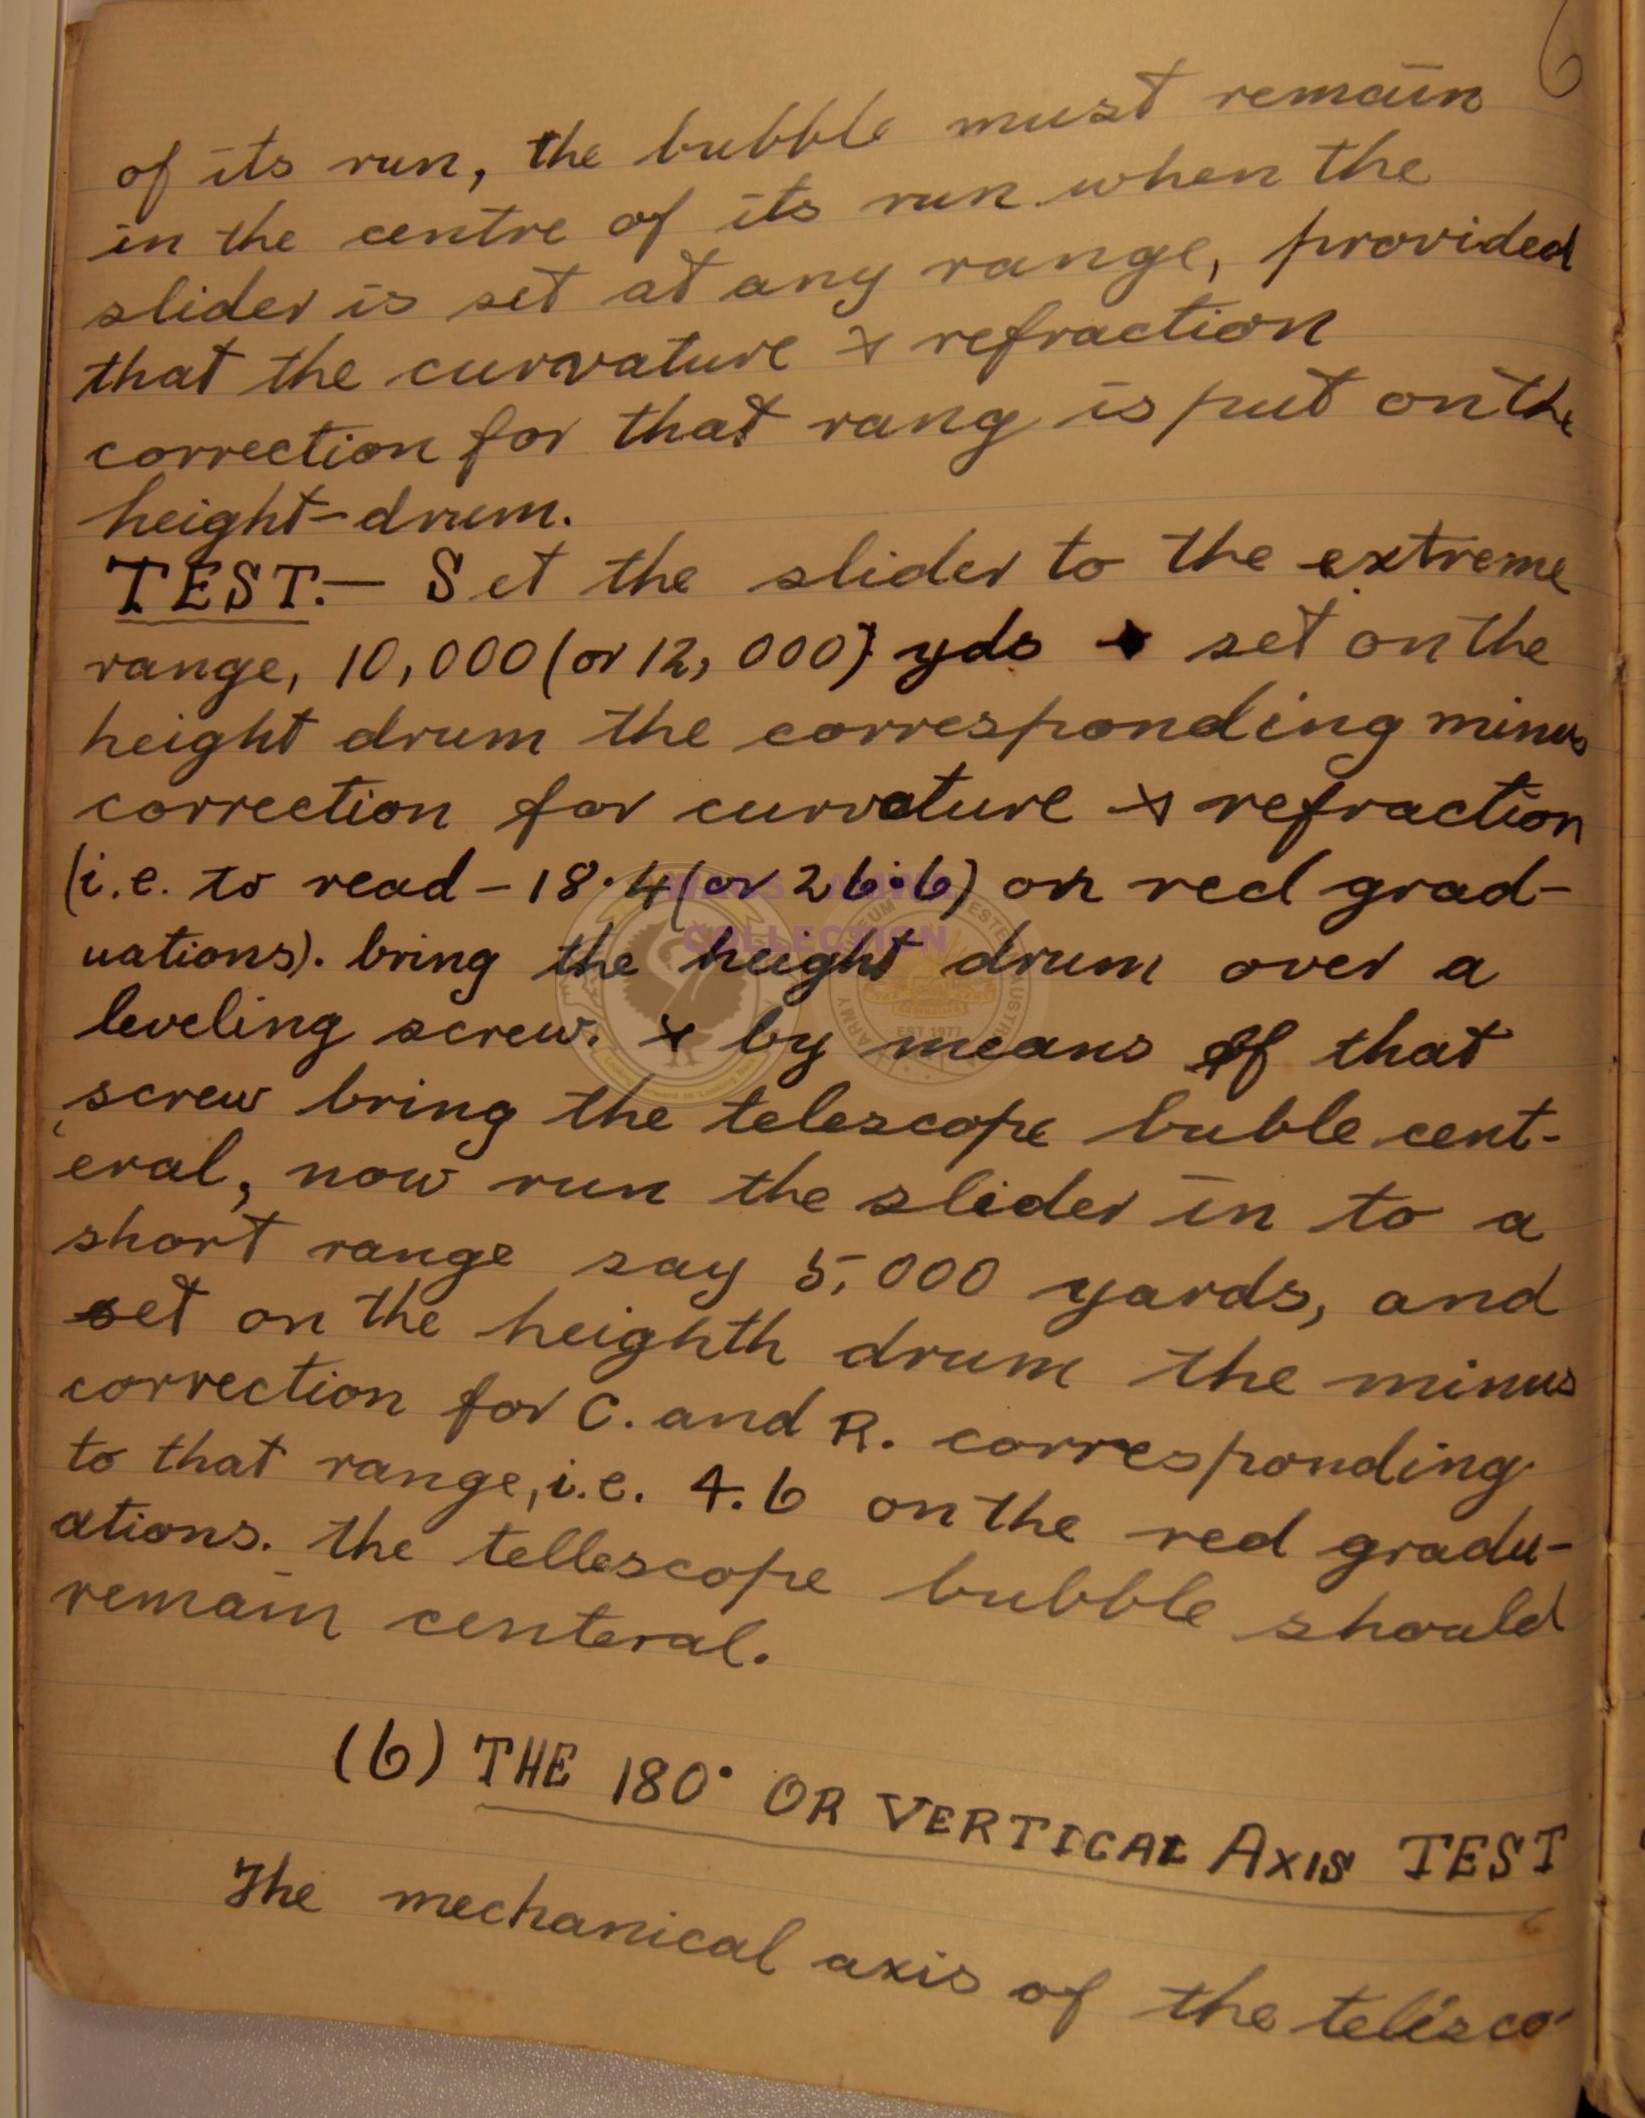 6
of its run, the bubble must remain
in the centre of its run when the
slider is set at any range, provided
that the curvature & refraction
correction for that rang is put on the
height-drum.
TEST.— Set the slider to the extreme
range, 10,000 (or 12,000) yds & set on the
height drum the corresponding minus
correction for curvature & refraction
(i.e. to read - 18.4 (or 26.6) on red grad-
uations). bring the height drum over a
leveling screw. & by means of that
screw bring the telescope buble cent-
eral, now run the slider in to a
short range say 5,000 yards, and
set on the heighth drum the minus
correction for C. and R. corresponding
to that range, i.e. 4.6 on the red gradu-
ations. the tellescope bubble should
remain centeral.
(6) THE 180° OR VERTICAL AXIS TEST
The mechanical axis of the telesco-
COLLECTION
EST 1977